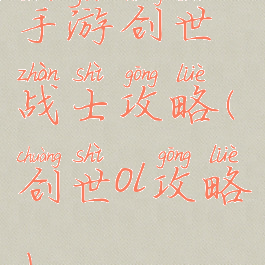 手游创世
zhàn shì gōng lüè
战士攻略(
chuàng shì gōng lüè
创世OL攻略
)